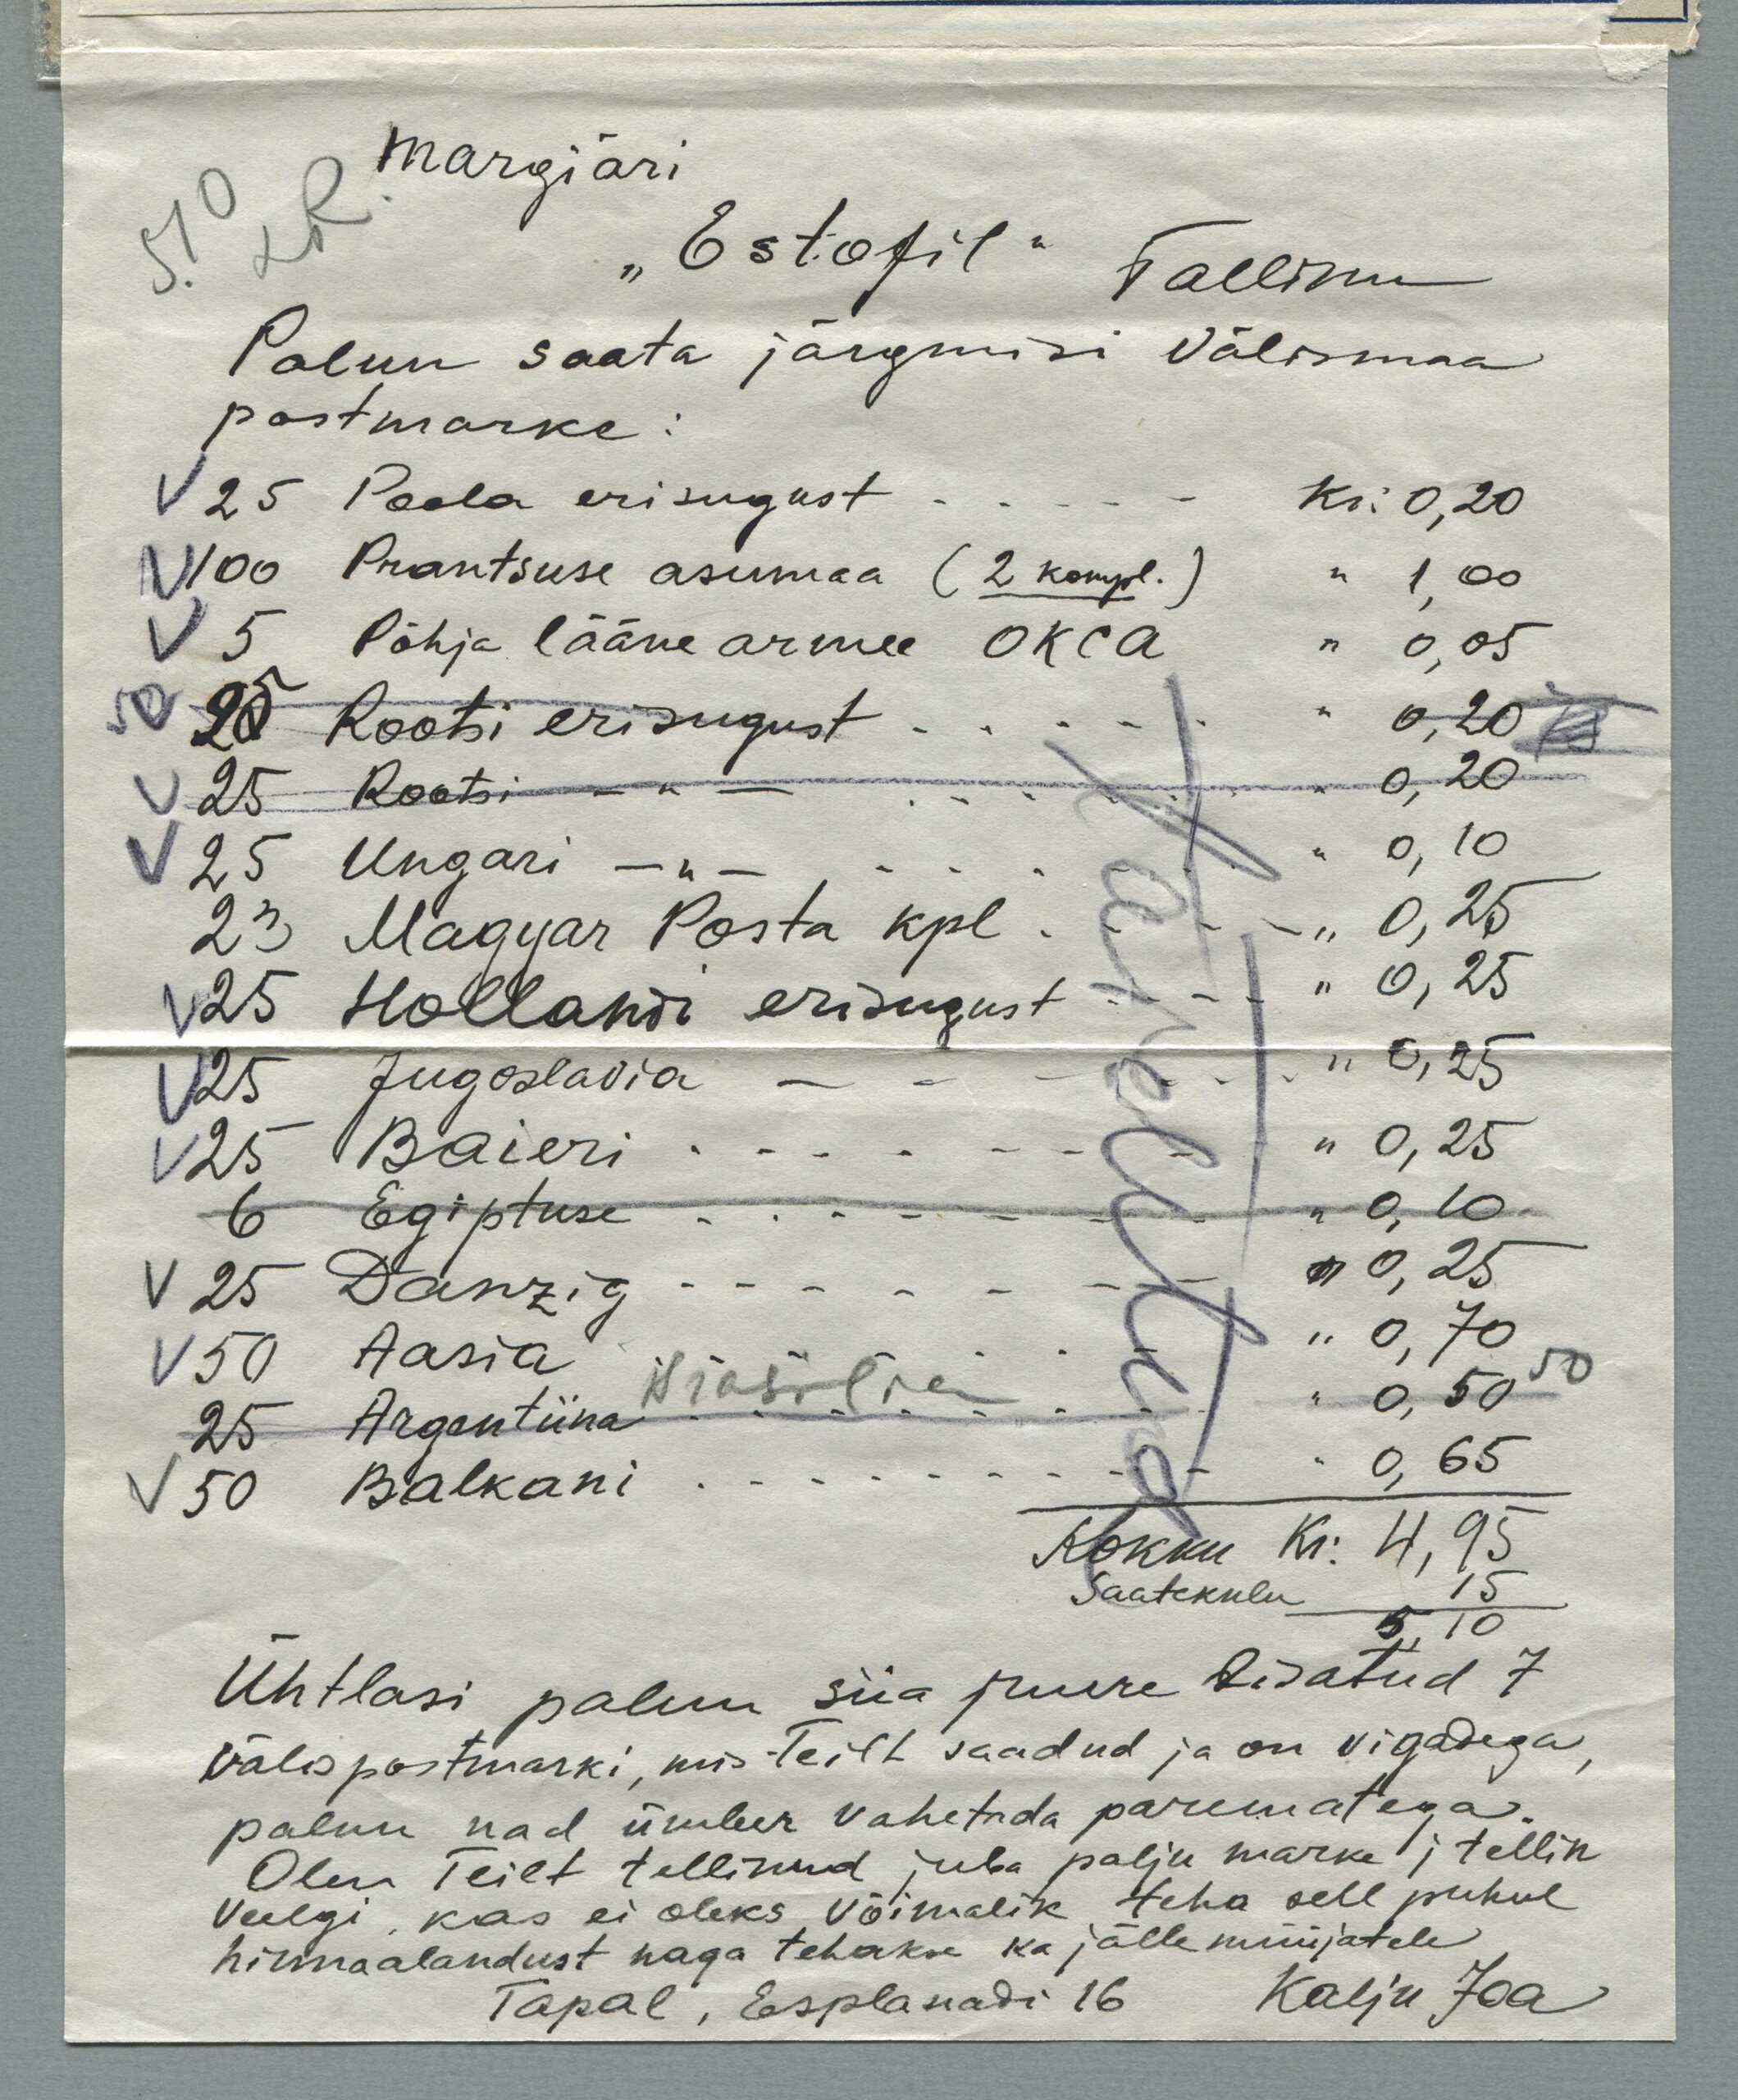 5.10
Margiäri
„Estofil" Tallinn
Palun saata järgmisi välismaa
postmarke:
V 25 Poola erisugust - - - - - Kr: 0,20
V 100 Prantsuse asumaa (2 kompl.) " 1,00
V 5 Põhja lääne armee OKCA " 0,05
50 25 Rootsi erisugust - - - - - " 0,20
V 25 Rootsi - " - - - - " 0,20
V 25 Ungari - " - - - - " 0,10
23 Magyar Posta kpl. - - - „ 0,25
V 25 Hollandi erisugust - - - - " 0,25
V 25 Jugoslavia - - - - - " 0,25
V 25 Baieri - - - - - - " 0,25
6 Egiptuse - - - - - - " 0,10
V 25 Danzig - - - - - - " 0,25
V 50 Aasia - - - " 0,70
25 Argentiina - - - - - - " 0,50 50
V 50 Balkani - - - - - - - - " 0,65
Kokku Kr: 4,95
Saatekulu 15
5,10
Ühtlasi palun siia juure lisatud 7
välispostmarki, mis Teilt saadud ja on vigadega,
palun nad ümber vahetada parematega.
Olen Teilt tellinud juba palju marke j tellin
veelgi, kas ei oleks võimalik teha sell puhul
hinnaalandust naga tehakse ka jällemüüjatele
Tapal, Esplanadi 16 Kalju Joa